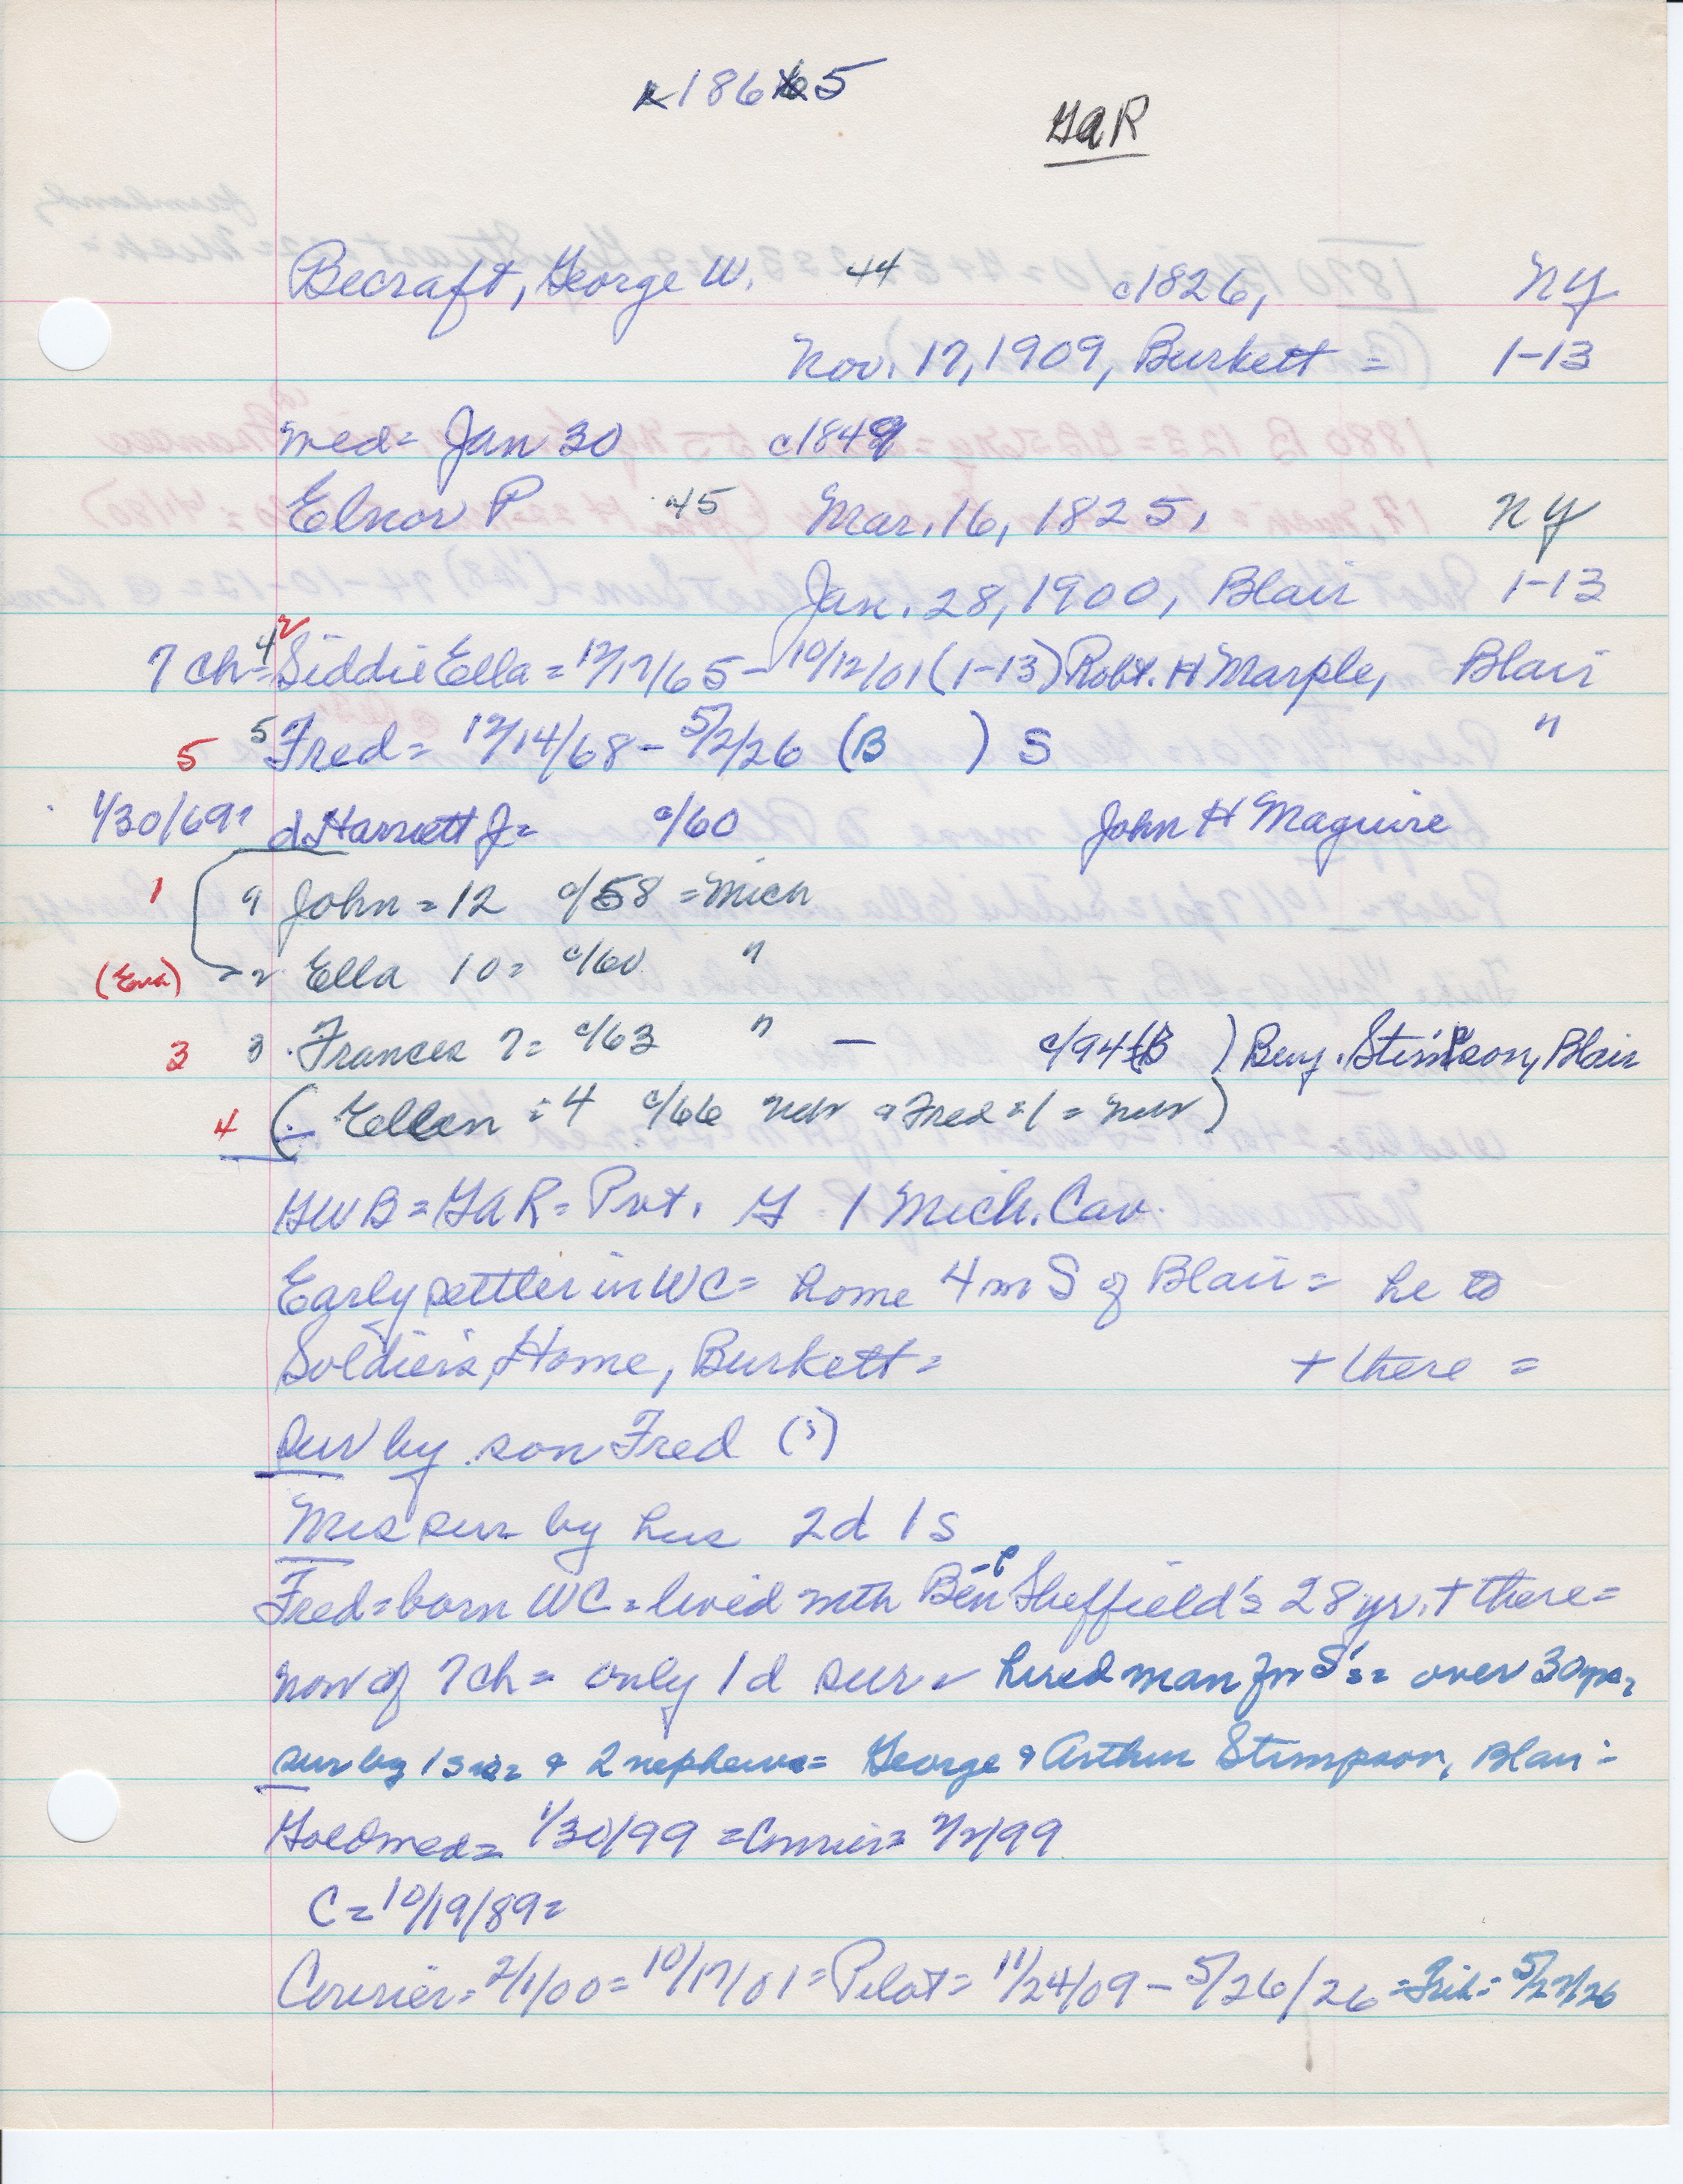 c1865
GaR
Becraft, George W. 44 c1826, NY
Nov. 17, 1909, Burkett = 1-13
med = Jan 30 c1849
Elnor P 45 Mar. 16, 1825, NY
Jan. 28, 1900, Blair 1-13
7 ch = 4 Siddie Ella = 12/17/65 - 10/12/01 (1-13) Robt. H Marple, Blair
5 5 Fred = 12/14/68 - 5/2/26 (B ) S "
1/30/69 = d. Harriett J = c/60 John H Maguire
1 9 John = 12 c/58 = Mich
(Eva) 2 Ella 10 = c/60 "
3 3 Frances 7 = c/63 " - c/94 (B ) Benj. Stimpson, Blair
4 ( Ellen = 4 c/66 Neb & Fred = 1 = Neb )
GWB = GaR = Pvt. G 1 Mich. Cav.
Early settler in WC = home 4 m S of Blair = he to
Soldiers Home, Burkett = + there =
sur by son Fred (?)
Mrs sur by hus 2d 1s
Fred = born WC = lived with Ben Sheffield's 28 yr. + there =
non of 7 ch = only 1 d sur = hired man for S's = over 30 yrs =
sur by 1 sis = & 2 nephews = George & Arthur Stimpson, Blair =
Gold med = 1/30/99 = Courier = 2/2/99
C = 10/19/89 =
Courier = 2/1/00 = 10/17/01 = Pilot = 11/24/09 - 5/26/26 = Trib = 5/27/26